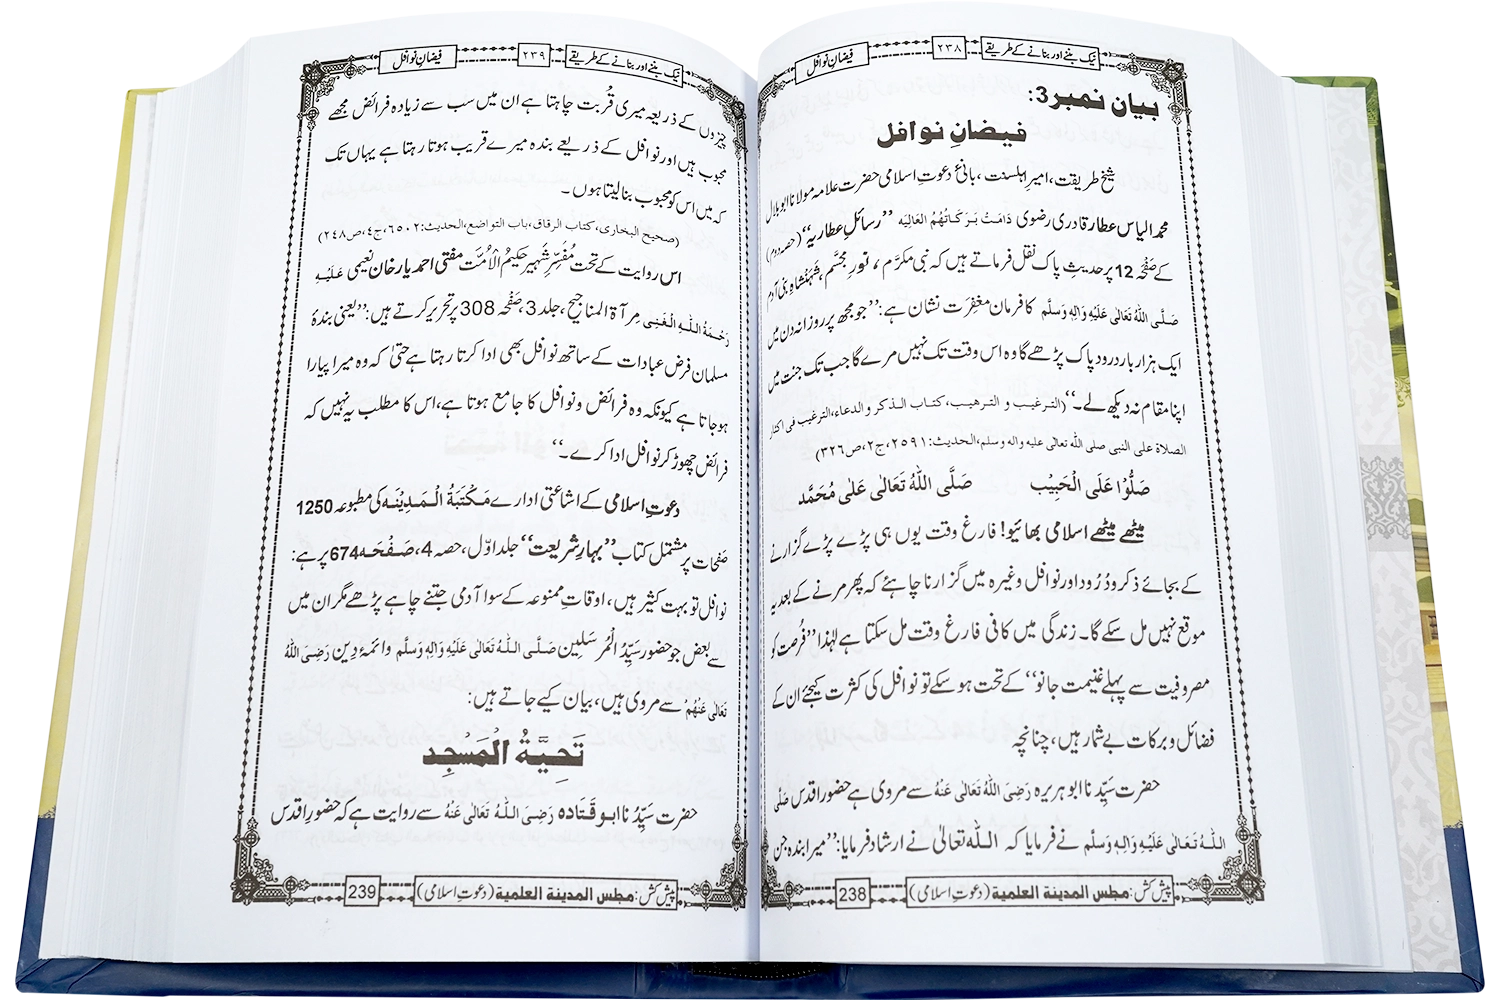 نیک بننے اور بنانے کے طریقے
۲۳۸
فیضانِ نوافل
بیان نمبر3:
فیضانِ نوافل
شیخ طریقت، امیرِ اہلسنت، بانیٔ دعوتِ اسلامی حضرت علامہ مولانا ابو بلال
محمد الیاس عطار قادری رضوی دَامَتْ بَرَکَاتُہُمُ الْعَالِیَہ ’’رسائلِ عطاریہ‘‘ (حصہ دوم)
کے صَفْحَہ 12 پر حدیثِ پاک نقل فرماتے ہیں کہ نبی مکرَّم، نورِ مجسَّم، شہنشاہِ بنی آدم
صَلَّی اللّٰہُ تَعَالٰی عَلَیْہِ وَاٰلِہٖ وَسَلَّم کا فرمانِ مغفِرَت نشان ہے: ’’جو مجھ پر روزانہ دن میں
ایک ہزار بار درود پاک پڑھے گا وہ اس وقت تک نہیں مرے گا جب تک جنت میں
اپنا مقام نہ دیکھ لے۔‘‘ (الترغیب و الترھیب، کتاب الذکر والدعاء، الترغیب فی اکثار
الصلاة علی النبی صلی اللہ تعالی علیہ والہ وسلم، الحدیث: ۲۵۹۱، ج۲، ص۳۲۶)
صَلُّوْا عَلَی الْحَبِیْب صَلَّی اللّٰہُ تَعَالٰی عَلٰی مُحَمَّد
میٹھے میٹھے اسلامی بھائیو! فارغ وقت یوں ہی پڑے پڑے گزارنے
کے بجائے ذکر و دُرُود اور نوافل وغیرہ میں گزارنا چاہئے کہ پھر مرنے کے بعد یہ
موقع نہیں مل سکے گا۔ زندگی میں کافی فارغ وقت مل سکتا ہے لہٰذا ’’فُرصت کو
مصروفیت سے پہلے غنیمت جانو‘‘ کے تحت ہو سکے تو نوافل کی کثرت کیجئے ان کے
فضائل و برکات بے شمار ہیں، چنانچہ
حضرت سَیِّدُنا ابو ہریرہ رَضِیَ اللّٰہُ تَعَالٰی عَنْہُ سے مروی ہے حضورِ اقدس صَلَّی
اللّٰہُ تَعَالٰی عَلَیْہِ وَاٰلِہٖ وَسَلَّم نے فرمایا کہ اللّٰہ تعالیٰ نے ارشاد فرمایا: ’’میرا بندہ جن
پیش کش: مجلس المدینة العلمیة (دعوتِ اسلامی)
238
نیک بننے اور بنانے کے طریقے
۲۳۹
فیضانِ نوافل
چیزوں کے ذریعہ میری قُربت چاہتا ہے ان میں سب سے زیادہ فرائض مجھے
محبوب ہیں اور نوافل کے ذریعے بندہ میرے قریب ہوتا رہتا ہے یہاں تک
کہ میں اس کو محبوب بنا لیتا ہوں۔
(صحیح البخاری، کتاب الرقاق، باب التواضع، الحدیث: ۶۵۰۲، ج۴، ص۲۴۸)
اس روایت کے تحت مُفَسِّرِ شَہِیر حکیمُ الْاُمَّت مفتی احمد یار خان نعیمی عَلَیْہِ
رَحْمَۃُ اللّٰہِ الْغَنِی مِرآۃ المناجیح، جلد 3، صَفْحَہ 308 پر تحریر کرتے ہیں: ’’یعنی بندۂ
مسلمان فرض عبادات کے ساتھ نوافل بھی ادا کرتا رہتا ہے حتیٰ کہ وہ میرا پیارا
ہو جاتا ہے کیونکہ وہ فرائض و نوافل کا جامع ہوتا ہے، اس کا مطلب یہ نہیں کہ
فرائض چھوڑ کر نوافل ادا کرے۔‘‘
دعوتِ اسلامی کے اشاعتی ادارے مَکْتَبَۃُ الْمَدِیْنَہ کی مطبوعہ 1250
صَفَحات پر مشتمل کتاب ’’بہارِ شریعت‘‘ جلد اوّل، حصہ 4، صَفْحَہ 674 پر ہے:
نوافل تو بہت کثیر ہیں، اوقاتِ ممنوعہ کے سوا آدمی جتنے چاہے پڑھے مگر ان میں
سے بعض جو حضور سَیِّدُ الْمُرسَلین صَلَّی اللّٰہُ تَعَالٰی عَلَیْہِ وَاٰلِہٖ وَسَلَّم و ائمۂ دین رَضِیَ اللّٰہُ
تَعَالٰی عَنْہُم سے مروی ہیں، بیان کیے جاتے ہیں:
تَحِیَّۃُ الْمَسْجِد
حضرت سَیِّدُنا ابو قَتادہ رَضِیَ اللّٰہُ تَعَالٰی عَنْہُ سے روایت ہے کہ حضورِ اقدس
پیش کش: مجلس المدینة العلمیة (دعوتِ اسلامی)
239